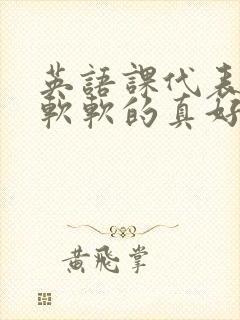 英語課代表
軟軟的真好
黃飛掌